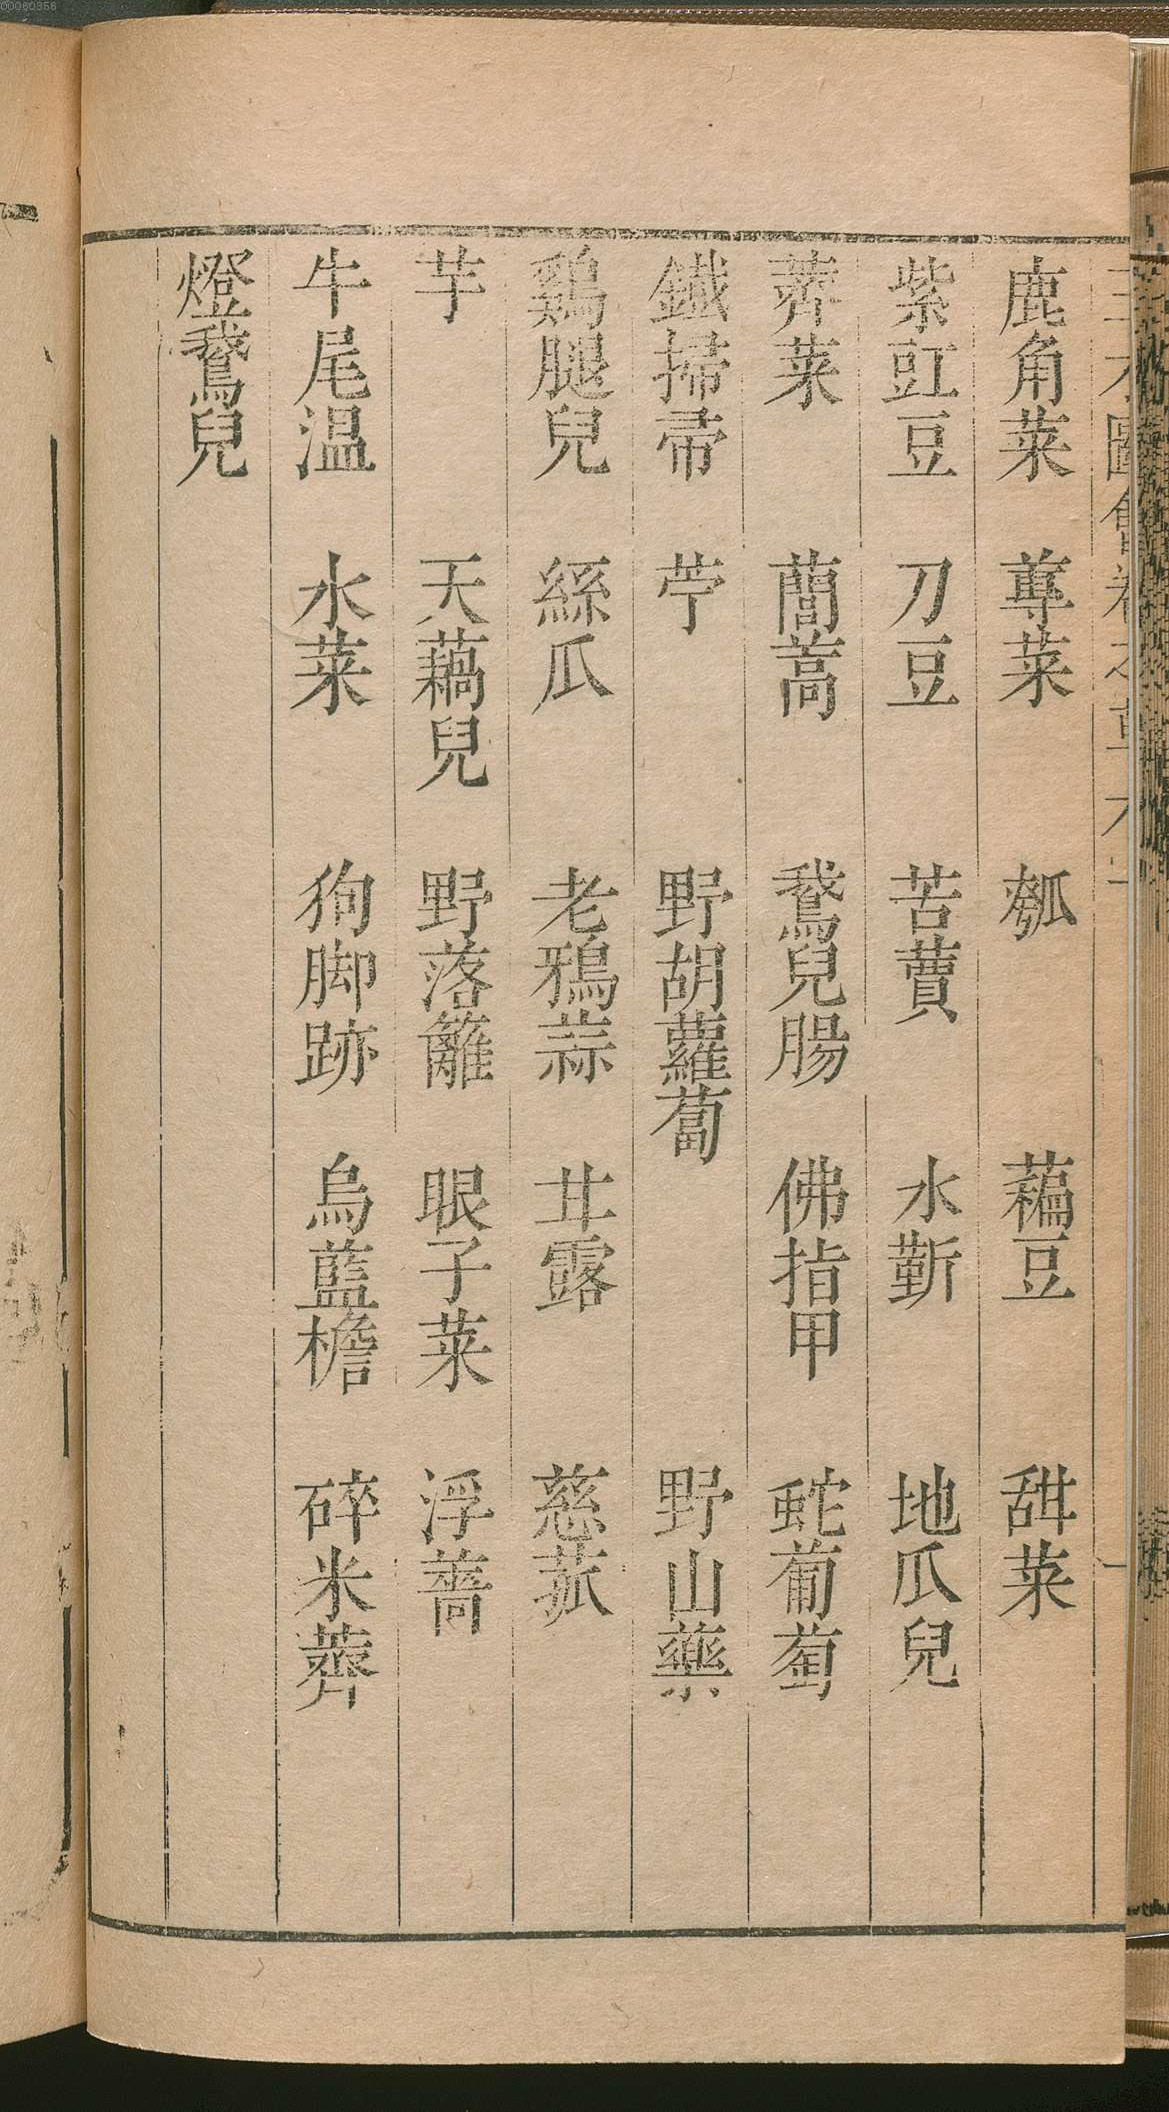 00060356
鹿角菜 蓴菜 瓠 藊豆 甜菜
紫豇豆 刀豆 苦蕒 水蘄 地瓜兒
薺菜 藺蒿 鵞兒腸 佛指甲 蛇葡萄
鐵掃帚 苧 野胡蘿蔔 野山藥
鷄腿兒 絲瓜 老鴉蒜 甘露 慈菰
芋 天藕兒 野落籬 眼子菜 浮薔
牛尾温 水菜 狗脚跡 烏藍檐 碎米薺
燈鵞兒